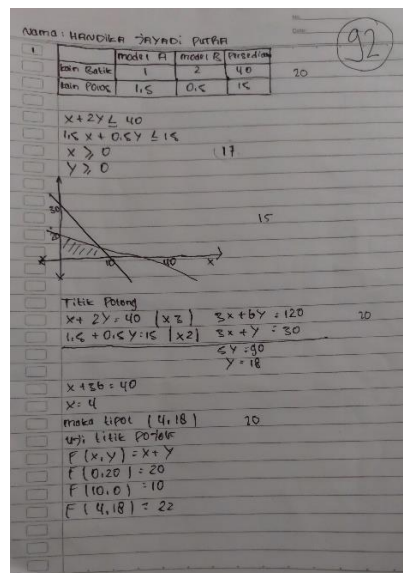 Nama : HANDIKA JAYADI PUTRA
92
1
model A model B Persediaan
kain Batik 1 2 40 20
kain Polos 1,5 0.5 15
x + 2y ≤ 40
1,5 x + 0.5y ≤ 15
x ≥ 0 17
y ≥ 0
30
20
15
10 40 x
Titik Potong
x + 2y = 40 (x3) 3x + 6y = 120 20
1,5 + 0,5 y = 15 (x2) 3x + y = 30
5y = 90
y = 18
x + 36 = 40
x = 4
maka tipot (4,18) 20
uji titik Potong
F (x,y) = x + y
F (0,20) = 20
F (10,0) = 10
F (4,18) = 22